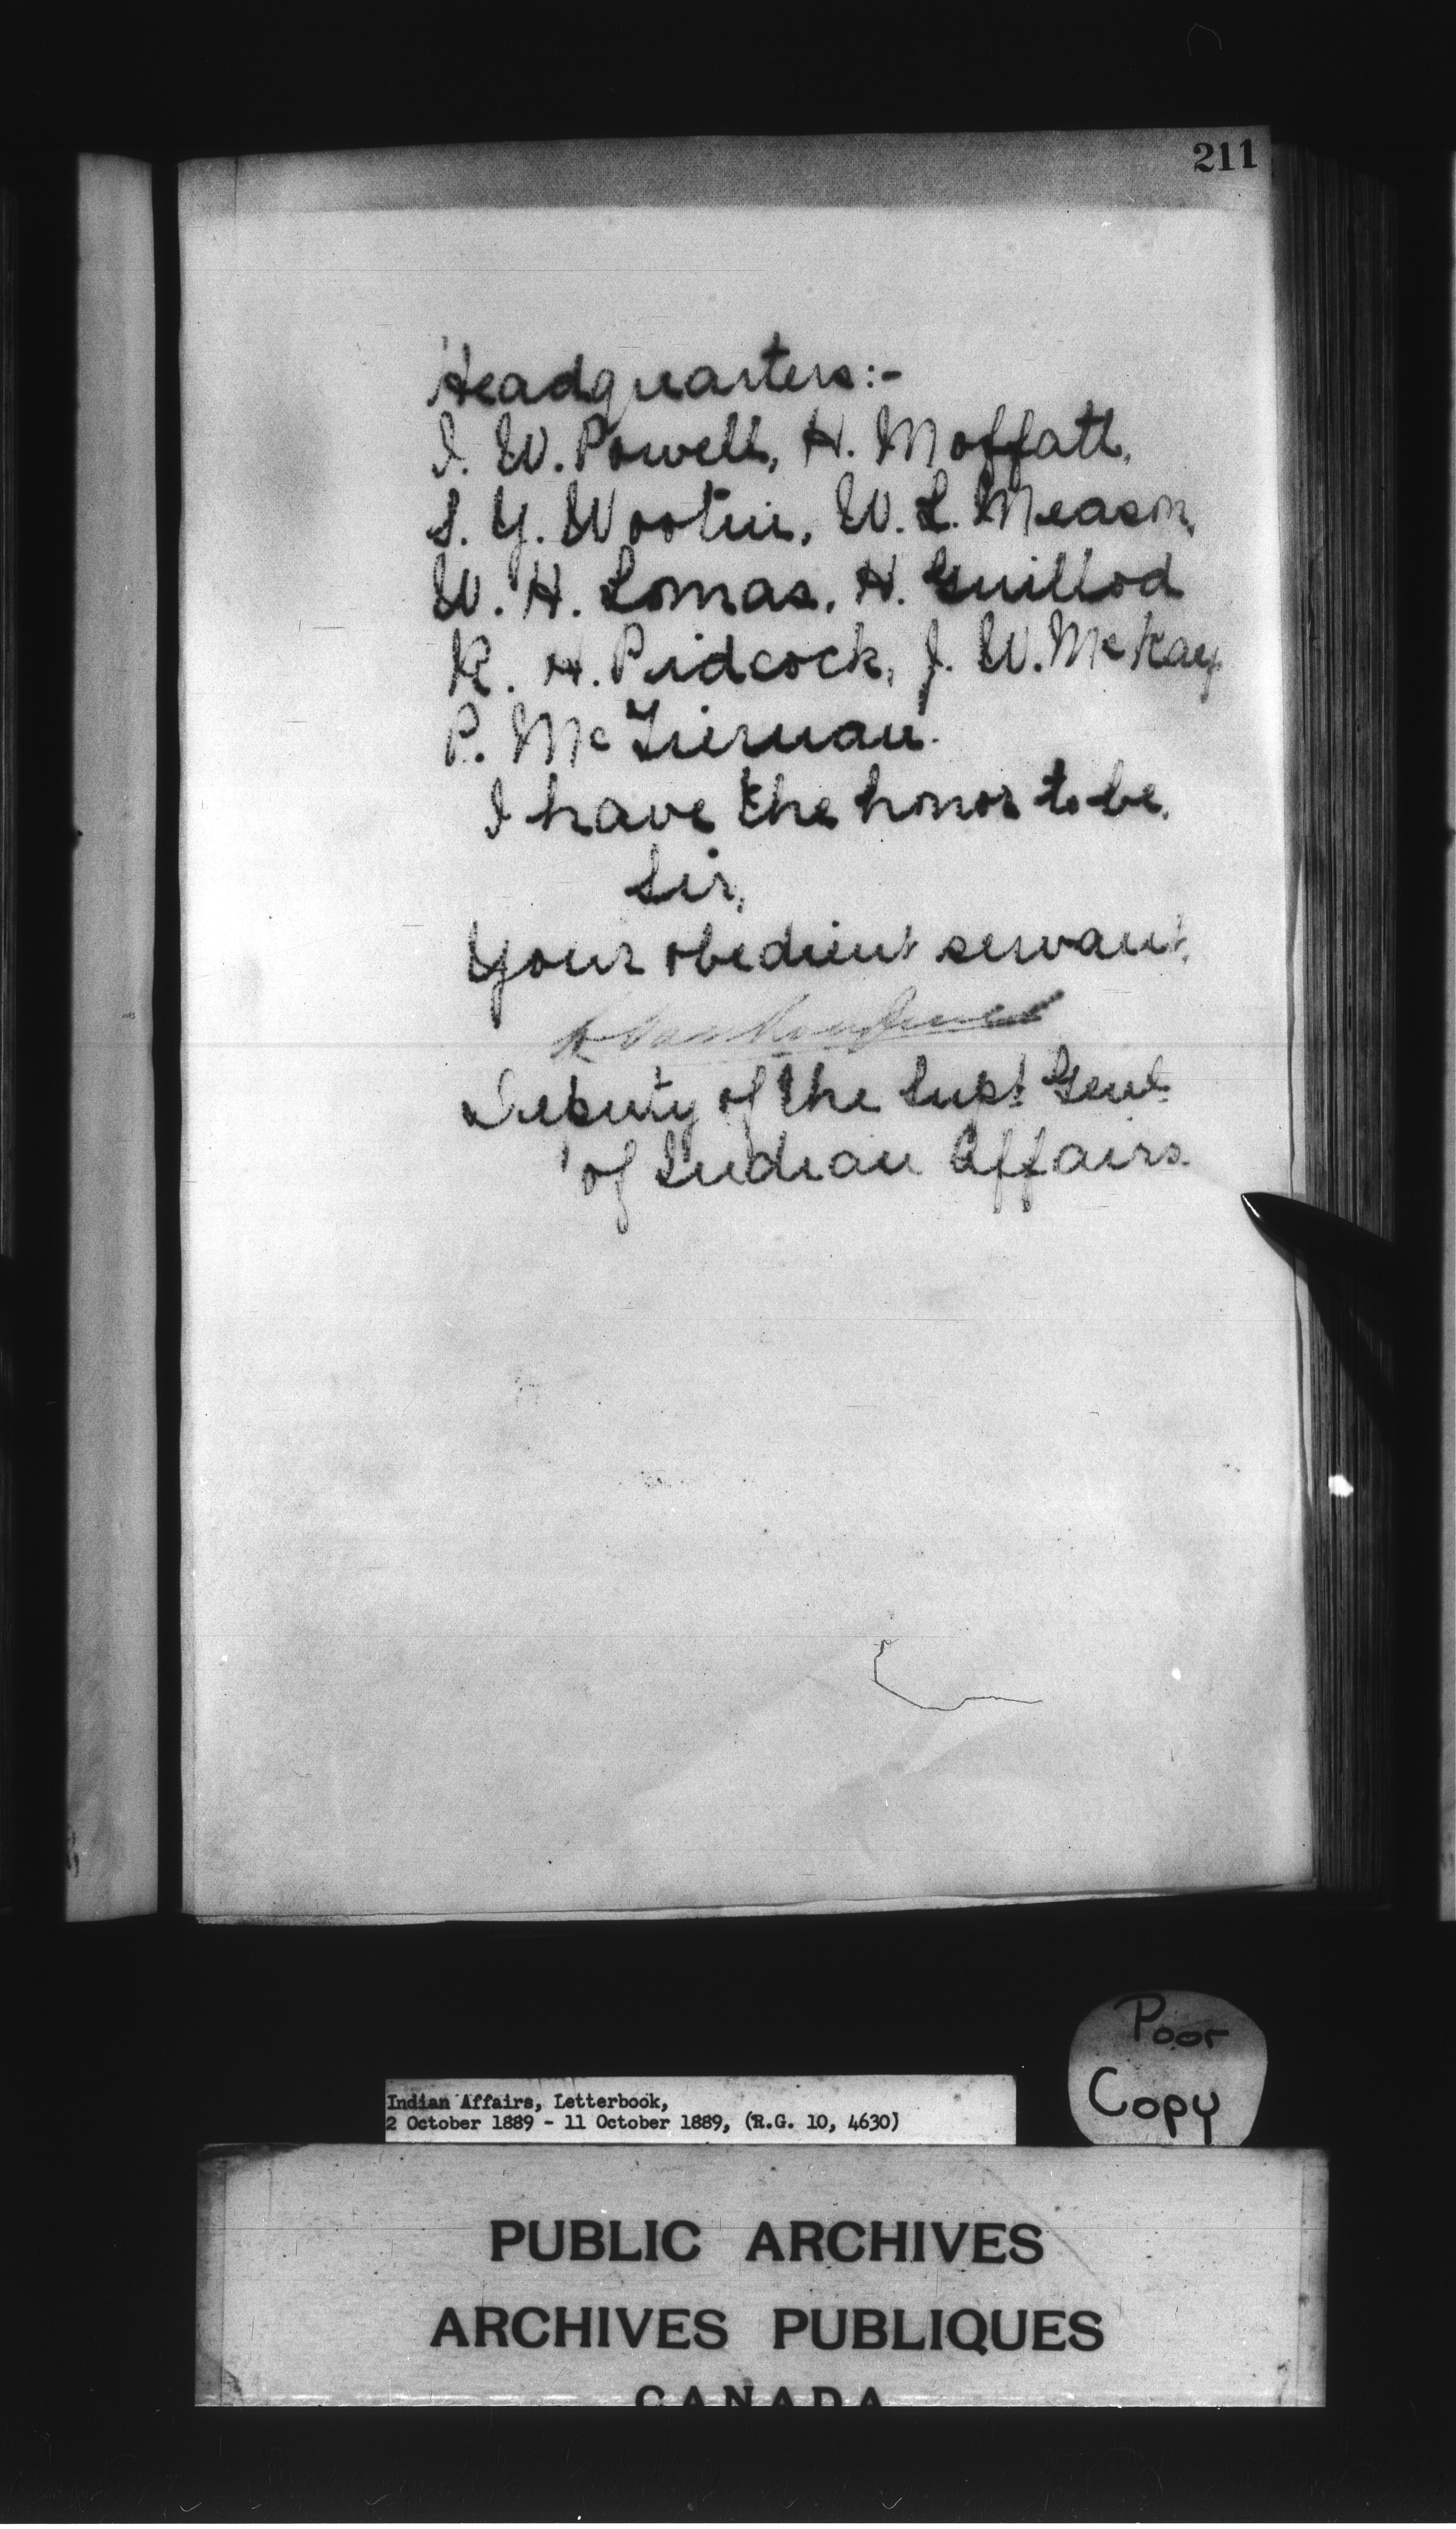 211
Headquarters:-
I. W. Powell, H. Moffatt,
S. Y. Wootin, W. L. Meason,
W. H. Lomas, H. Guillod
R. H. Pidcock, J. W. McKay
P. McTiernan.
I have the honor to be,
Sir,
Your obedient servant,
L. VanKoughnet
Deputy of the Supt. Genl.
of Indian Affairs.
Poor
Copy
Indian Affairs, Letterbook,
2 October 1889 - 11 October 1889, (R.G. 10, 4630)
PUBLIC ARCHIVES
ARCHIVES PUBLIQUES
CANADA